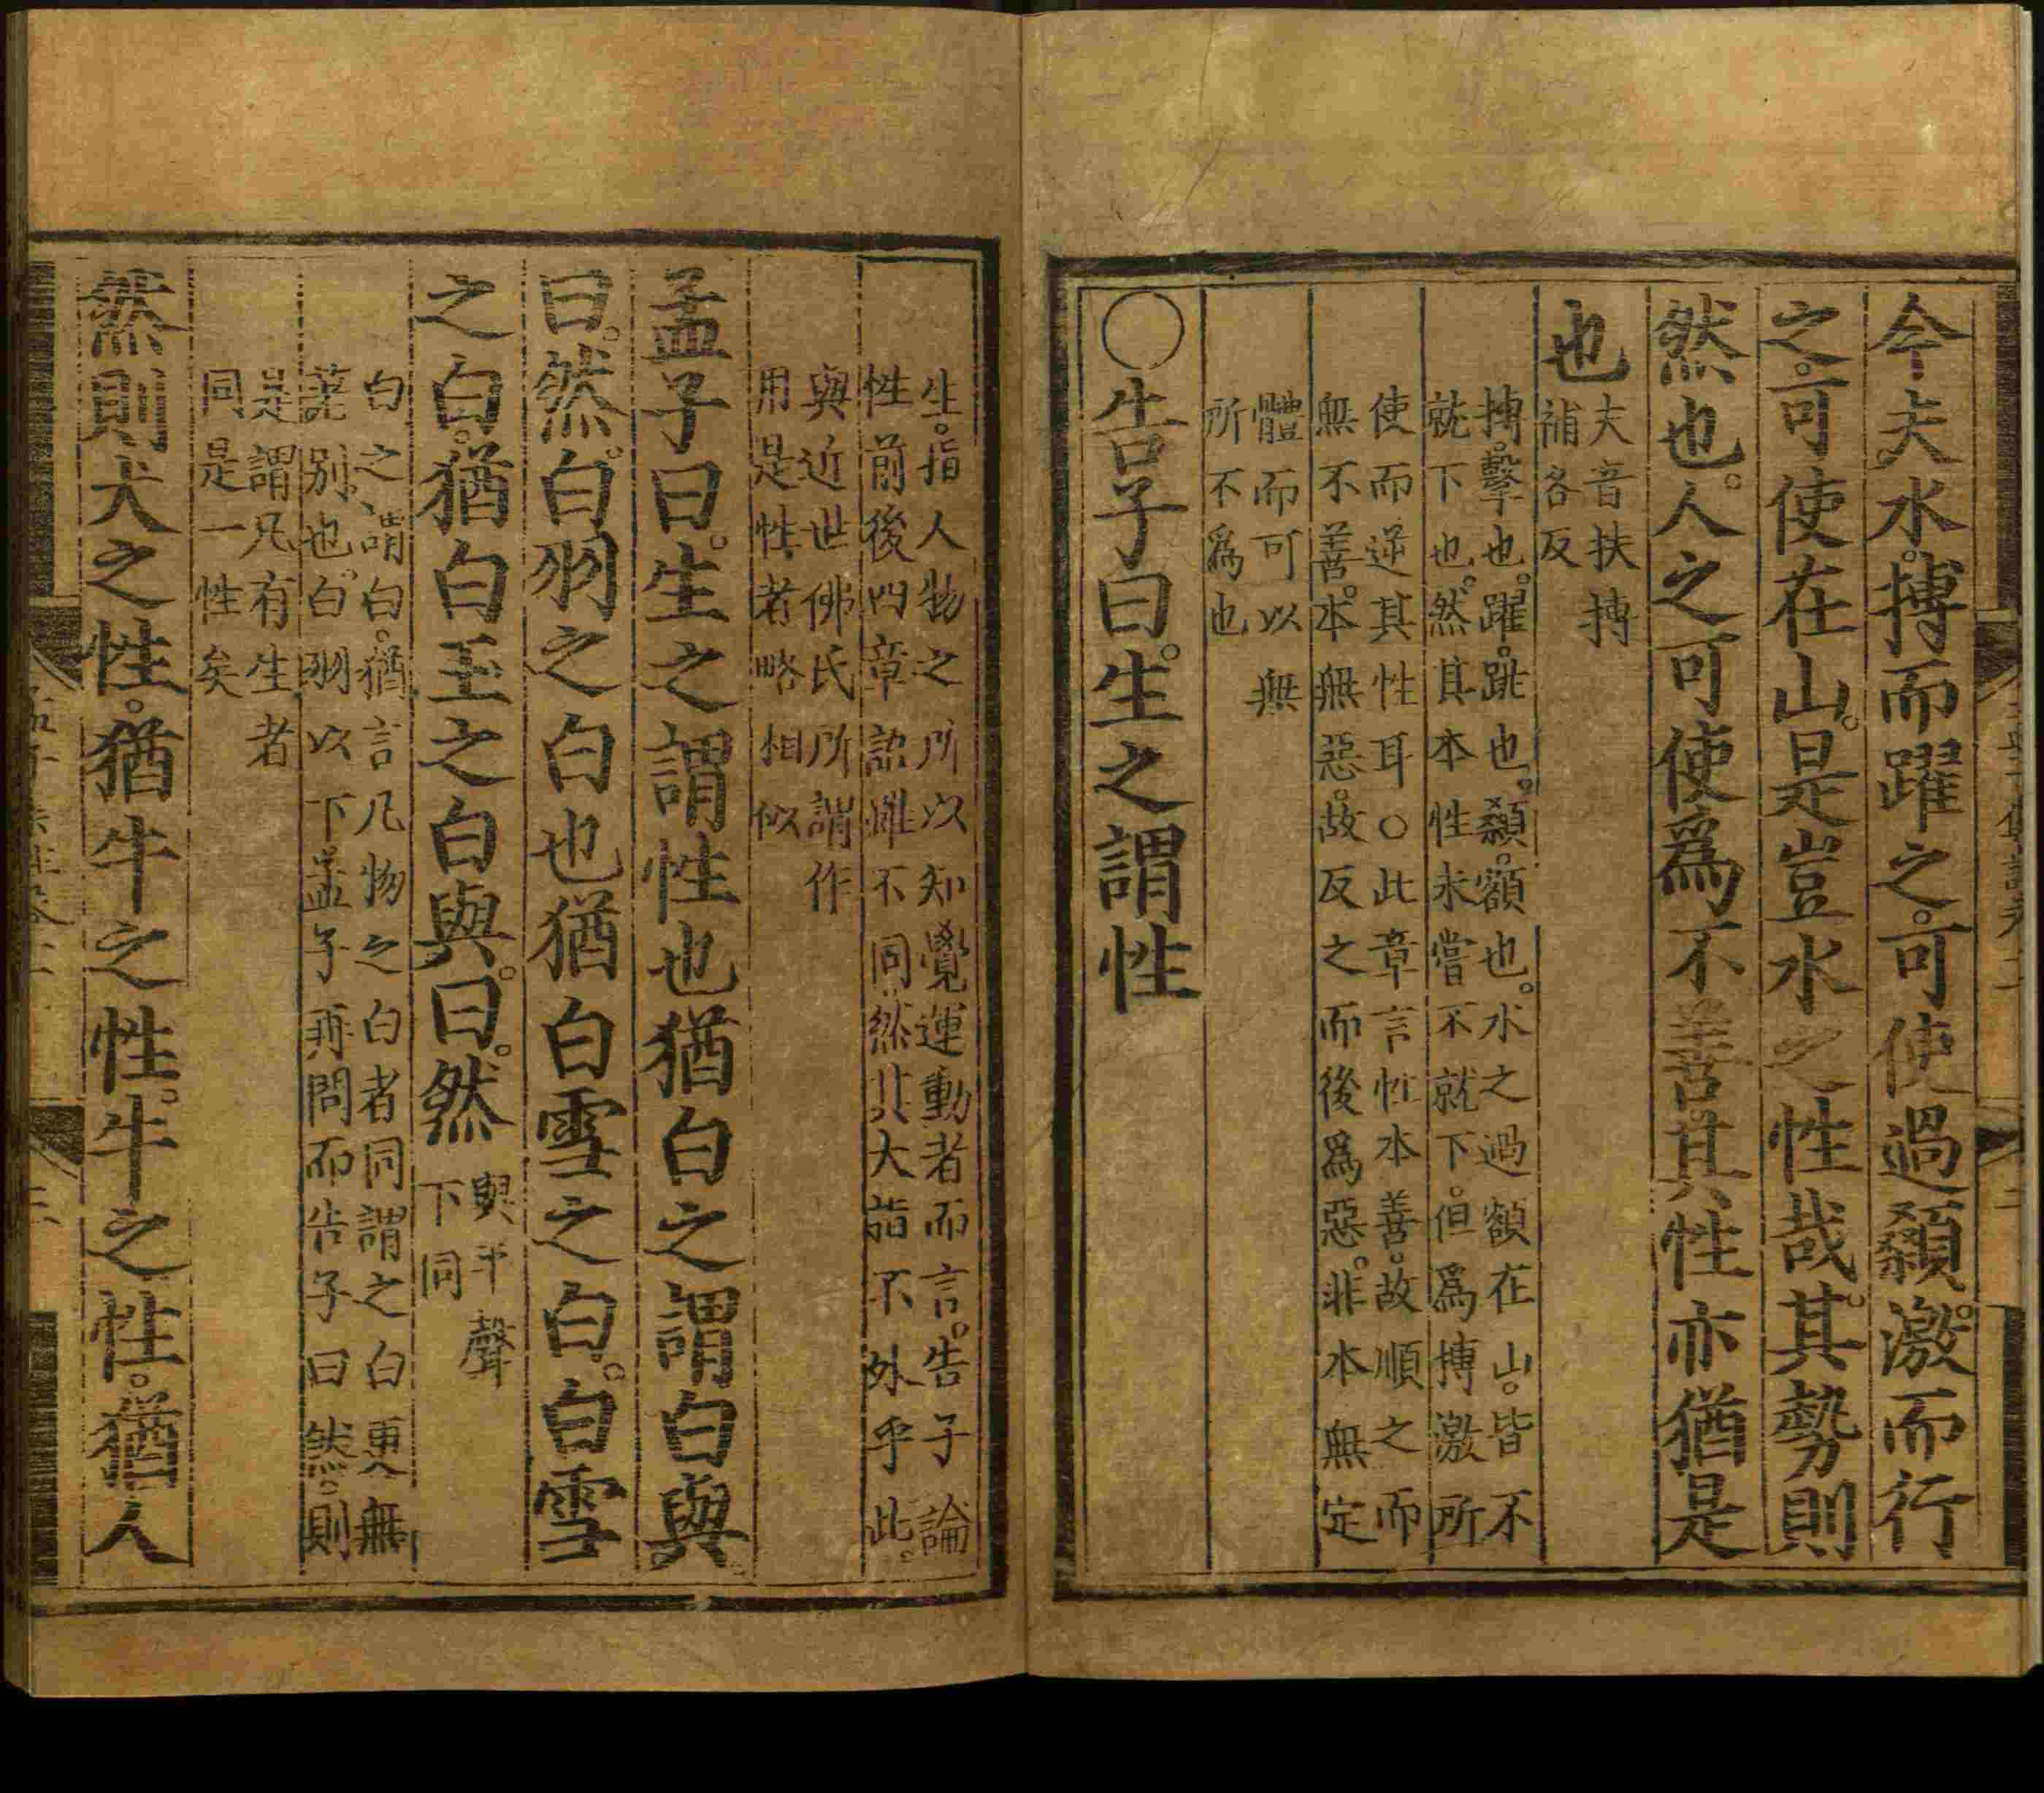 今夫水。搏而躍之。可使過顙。激而行
之。可使在山。是豈水之性哉。其勢則
然也。人之可使爲不善其性亦猶是
也
夫音扶搏
補各反
搏。擊也。躍。跳也。顙。額也。水之過額在山。皆不
就下也。然其本性未嘗不就下。但爲搏激所
使而逆其性耳○此章言性本善。故順之而
無不善。本無惡。故反之而後爲惡。非本無定
體而可以無
所不爲也
○告子曰。生之謂性
生。指人物之所以知覺運動者而言。告子論
性前後四章語雖不同然其大指不外乎此。
與近世佛氏所謂作
用是性者略相似
孟子曰。生之謂性也猶白之謂白與
曰。然。白羽之白也猶白雪之白。白雪
之白。猶白玉之白與。曰。然
與平聲
下同
白之謂白。猶言凡物之白者同謂之白更無
差別也。白羽以下孟子再問而告子曰然。則
是謂凡有生者
同是一性矣
然則犬之性。猶牛之性。牛之性。猶人
三